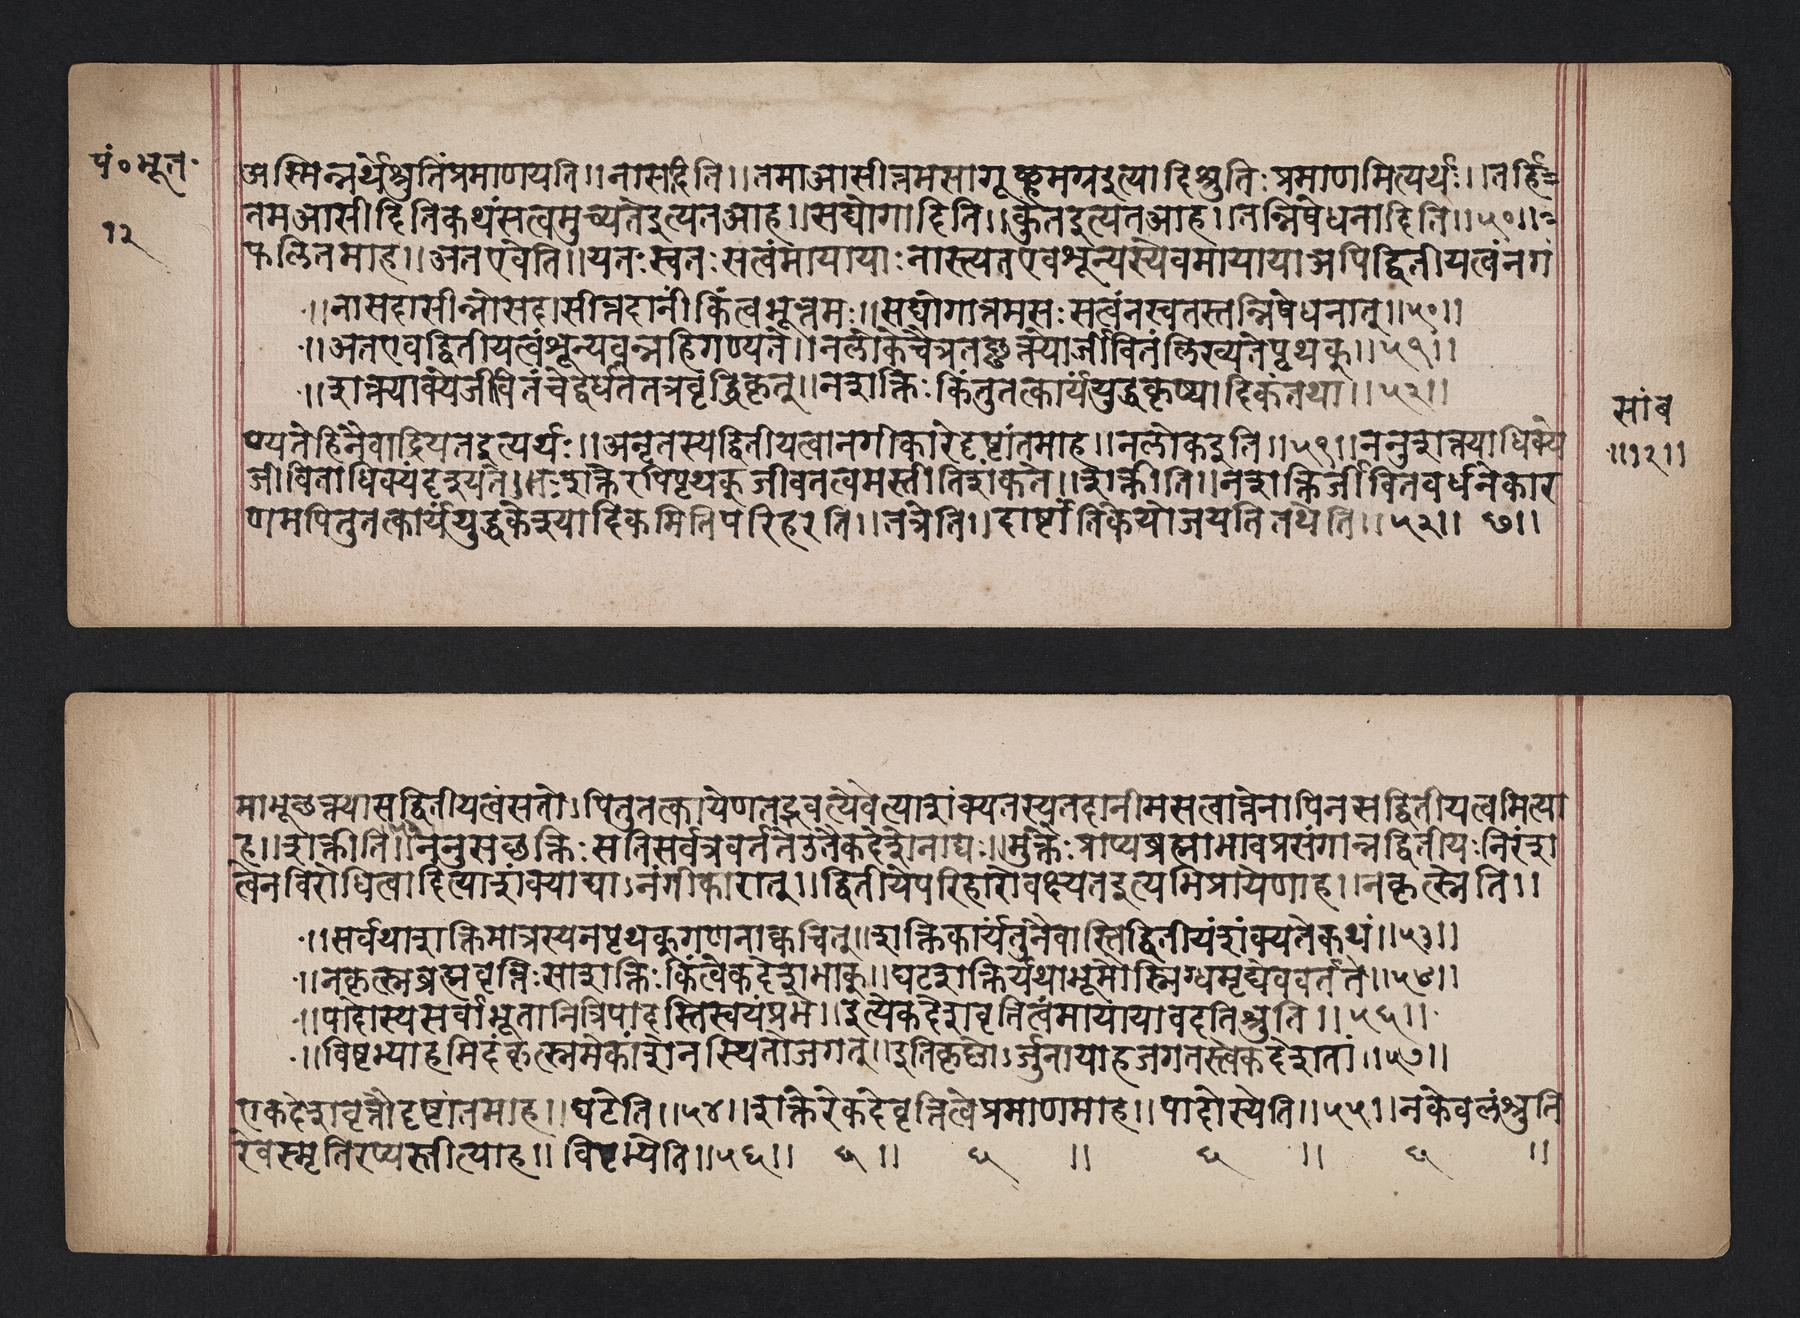 पं॰भूत॰
१२
अस्मिन्नर्थेश्रुतिंप्रमाणयति।।नासदिति।।तमआसीत्तमसागूळ्हमग्रइत्यादिश्रुतिःप्रमाणमित्यर्थः।।तर्हि
तमआसीदितिकथंसत्वमुच्यतेइत्यतआह।।सद्योगादिति।।कुतइत्यतआह।।तन्निषेधनादिति।।५०।।
फलितमाह।।अतएवेति।।यतःस्वतःसत्वंमायायाःनास्त्यतएवशून्यस्येवमायायाअपिद्वितीयत्वंनग
।।नासदासीन्नोसदासीत्तदानींकिंत्वभूत्तमः।।सद्योगात्तमसःसत्वंनस्वतस्तन्निषेधनात्।।५०।।
।।अतएवद्वितीयत्वंशून्यवन्नहिगण्यते।।नलोकेचैत्रतछक्त्योर्जीवितंलिख्यतेपृथक्।।५१।।
।।शक्त्याक्येजीवितंचेद्वर्धतेतत्रवृद्धिकृत्।।नशक्तिःकिंतुतत्कार्यंयुद्धकृष्यादिकंतथा।।५२।।
ण्यतेहिनैवाद्रियतइत्यर्थः।।अनृतस्यद्वितीयत्वानंगीकारेदृष्टांतमाह।।नलोकइति।।५१।।ननुशक्त्याधिक्ये
जीविताधिक्यंदृश्यते।।तःशक्तेरपिपृथक्जीवनत्वमस्तीतिशंकते।।शक्तीति।।नशक्तिर्जीवितवर्धनेकार
णमपितुतत्कार्यंयुद्धकृष्यादिकमितिपरिहरति।।तत्रेति।।दार्ष्टांतिकेयोजयतितथेति।।५२।। छ।।
सांब
।।१२।।
माभूछक्त्यासद्वितीयत्वंसतोऽपितुतत्कार्येणतद्भवत्येवेत्याशंक्यतस्यतदानीमसत्वात्तेनापिनसद्वितीयत्वमित्या
ह।।शक्तीति।।ननुसछक्तिःसतिसर्वत्रवर्ततेउतैकदेशेनाद्यः।।मुक्तैःप्राप्यब्रह्माभावप्रसंगान्नद्वितीयःनिरंश
त्वेनविरोधित्वादित्याशंक्याद्याऽनंगीकारात्।।द्वितीयेपरिहारोवक्ष्यतइत्यभिप्रायेणाह।।नकृत्स्नेति।।
।।सर्वथाशक्तिमात्रस्यनपृथक्गणनाक्वचित्।।शक्तिकार्यंतुनैवास्तिद्वितीयंशंक्यतेकथं।।५३।।
।।नकृत्स्नब्रह्मवृत्तिःसाशक्तिःकिंत्वेकदेशभाक्।।घटशक्तिर्यथाभूमौस्निग्धमृद्येववर्तते।।५४।।
।।पादोस्यसर्वाभूतानित्रिपादस्तिस्वयंप्रभे।।इत्येकदेशवृत्तित्वंमायायावदतिश्रुति।।५६।।
।।विष्टभ्याहमिदंकृत्स्नमेकांशेनस्थितोजगत्।।इतिकृष्णोऽर्जुनायाहजगतस्त्वेकदेशतां।।५७।।
एकदेशवृत्तौदृष्टांतमाह।।घटेति।।५४।।शक्तेरेकदेवृत्तित्वेप्रमाणमाह।।पादोस्येति।।५५।।नकेवलंश्रुति
रेवस्मृतिरप्यस्तीत्याह।।विष्टभ्येति।।५६।। छ।। छ ।। छ ।। छ ।।